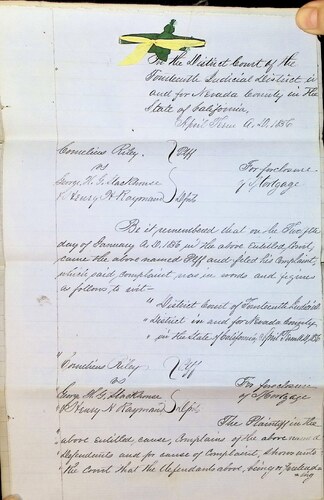 In the District Court of the
Fourteenth Judicial District in
and for Nevada County in the
State of California,
April Term A.D. 186
Cornelius Riley. Plff
vs For foreclosure
George H. G. Stackhouse of Mortgage
& Henry N Raymond Dfts
Be it remembered that on the
day of January A.D. 186 in the above Entitled Court,
came the above named Plff and files his Complaint,
which said complaint, was in words and figures
as follows, to wit—
"District Court of Fourteenth Judicial
"District in and for Nevada County
"in the State of California April Term A.D. 186
Cornelius Riley Plff
vs For foreclosure
George H. G. Stackhouse of Mortgage
& Henry N Raymond Dfts
The Plaintiff in the
above entitled cause, complains of the above named
defendants and for cause of Complaint, shows unto
the Court that the Defendants above, being or